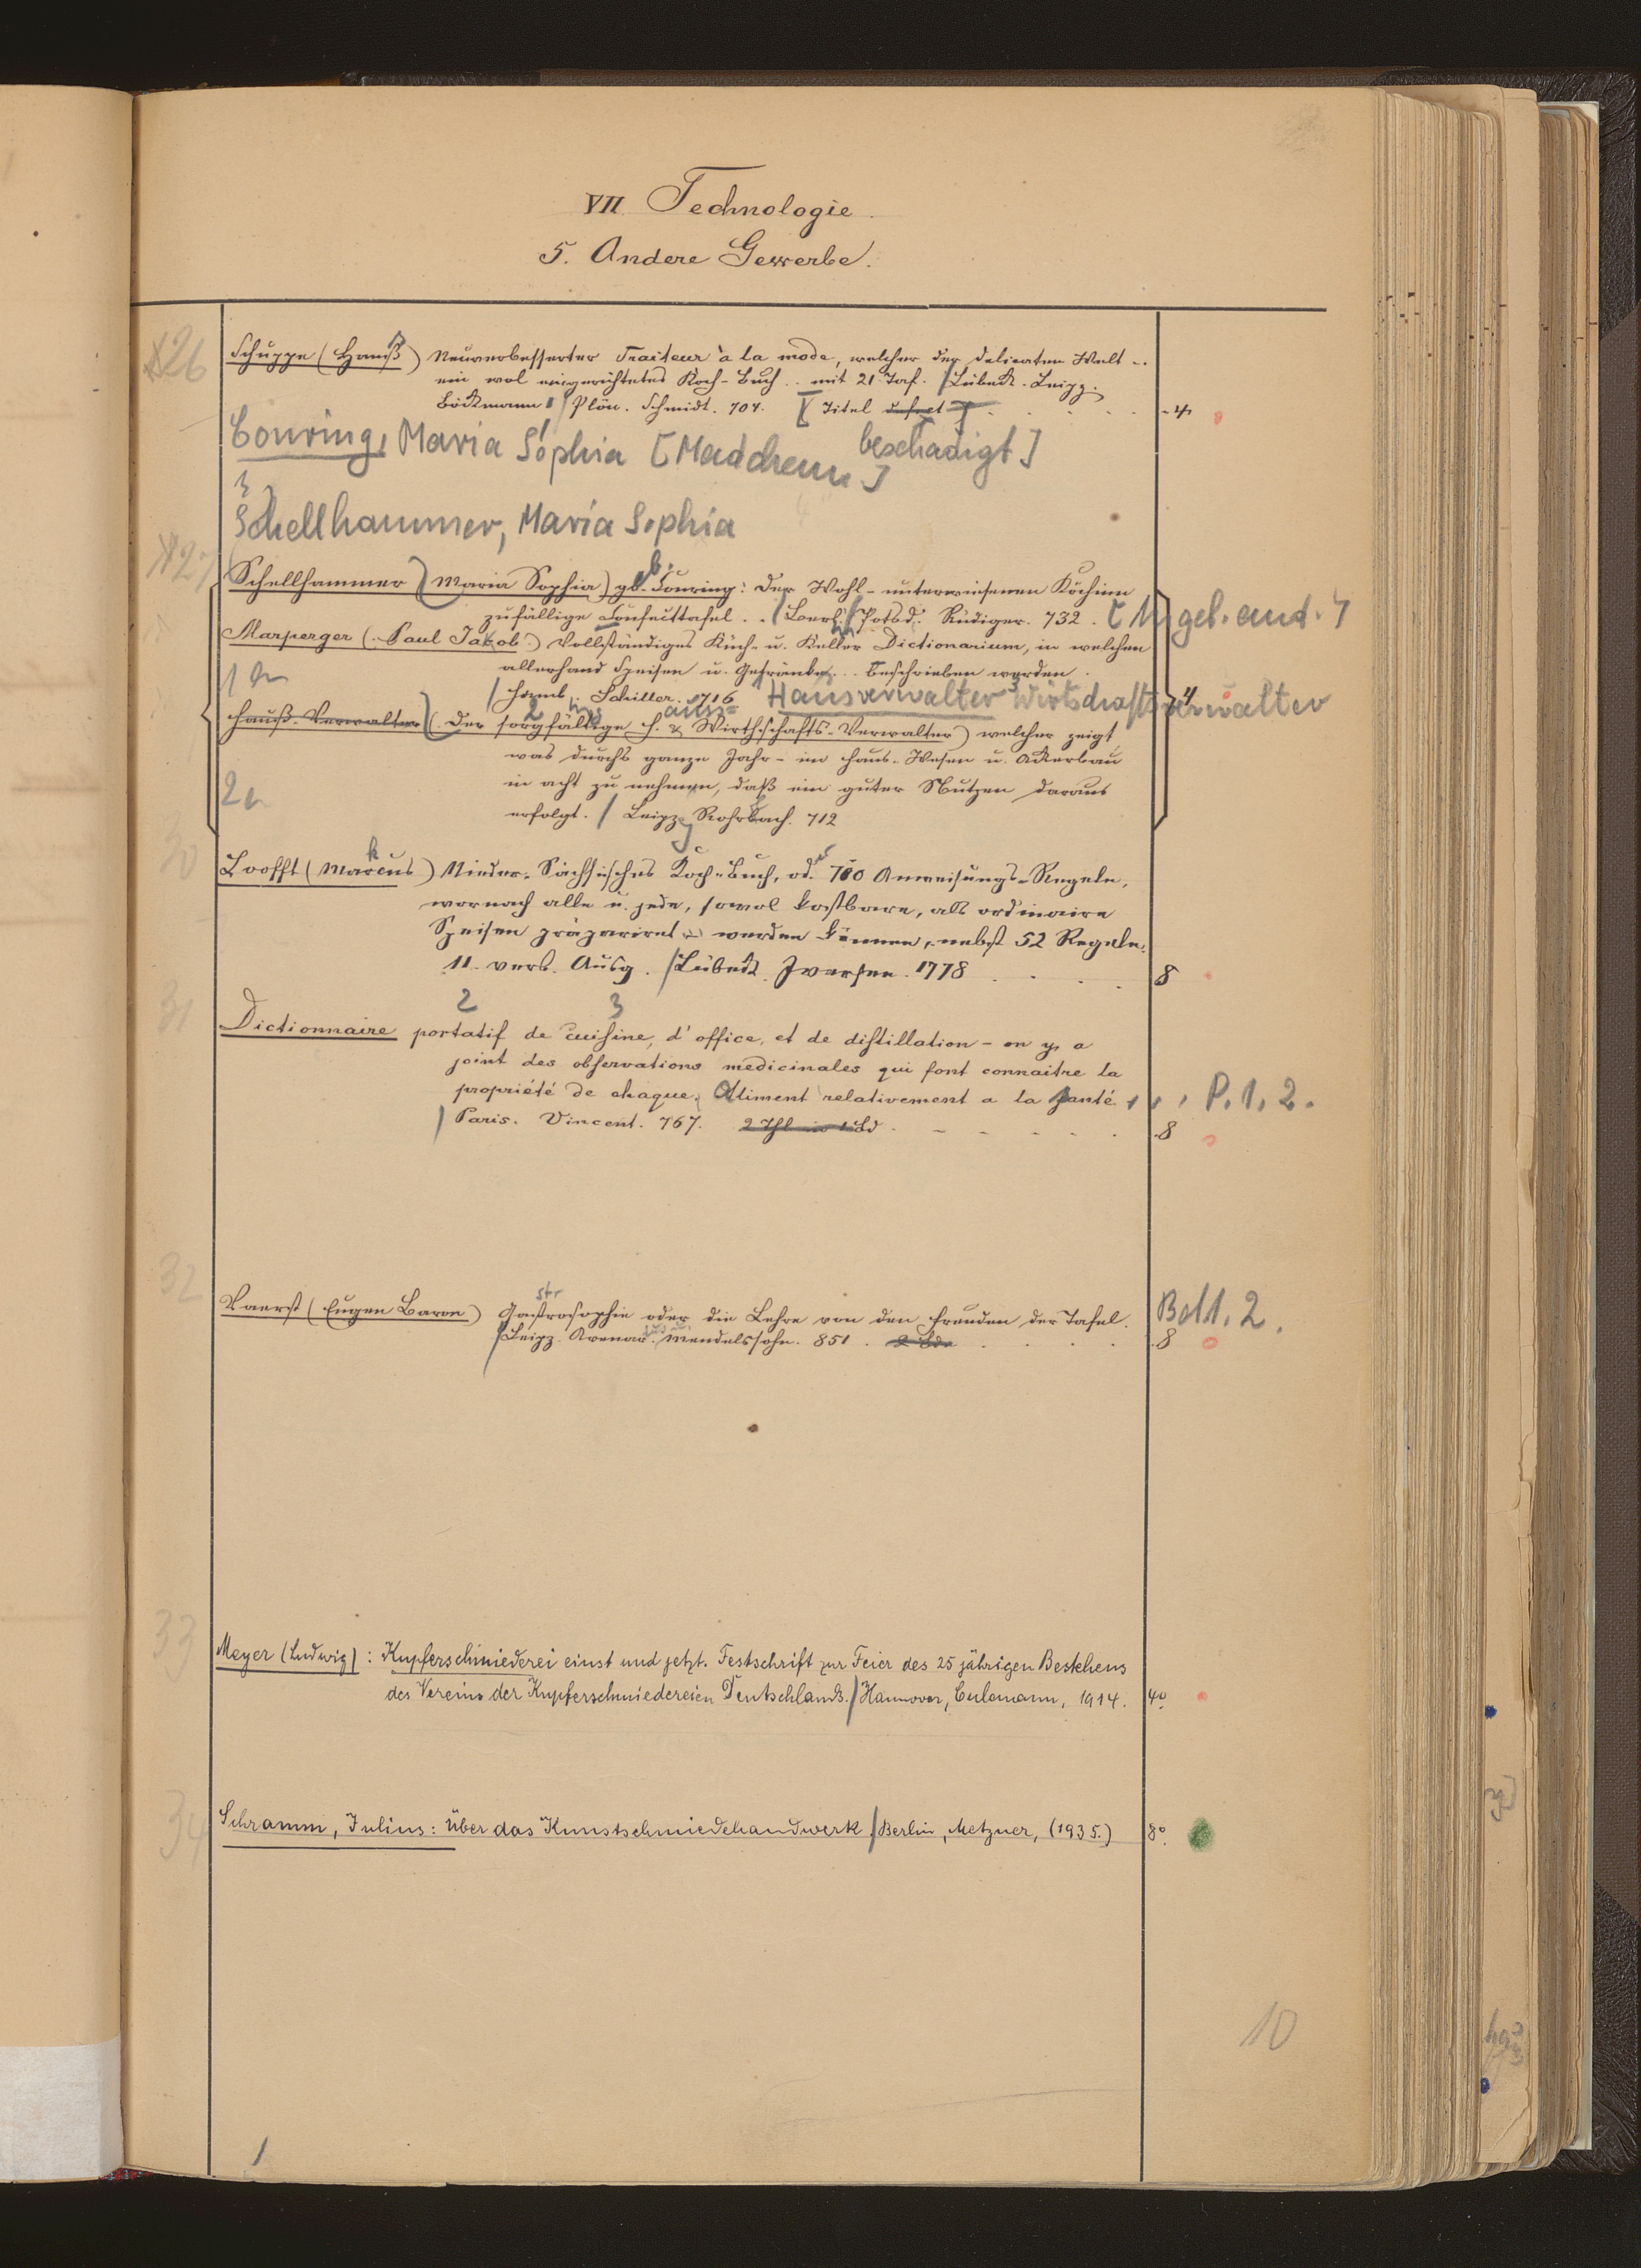 VII Technologie.
5. Andere Gewerbe.
26
Schuppe (Hanß) Neuverbesserter Traiteur à la mode, welcher der delicaten Welt ..
ein wol eingerichtetes Koch-Buch .. mit 21 Taf. / Lübeck. Leipz.
Böckmann / Plön. Schmidt. 704. [Titel defect] . . . . . 4
beschädigt]
Conring, Maria Sophia [Mädchenn.]
s.
Schellhammer, Maria Sophia
27
Schellhammer (Maria Sophia) geb. Conring: Der Wohl-unterwiesenen Köchinn
zufällige Confecttafel .. / Berl. / Potsd. Rüdiger. 732. [Ang. eb. and. 4
Marperger (Paul Jakob) Vollständiges Küch- u. Keller Dictionarium, in welchem
allerhand Speisen u. Getränke .. beschrieben werden.
1 an
/ Hamb. Schiller. 1716 Hausverwalter 3 Wirtschaftsverwalter 4
Hauß-Verwalter (Der sorgfältige H. & Wirthschafts-Verwalter) welcher zeigt
was durchs ganze Jahr - im Haus-Wesen u. Ackerbau
in acht zu nehmen, daß ein guter Nutzen daraus
2 an
erfolgt. / Leipzg Rohrbach. 712
30
Loofft (Markus) Nieder-Sächsisches Koch-Buch, od. 780 Anweisungs-Regeln,
wornach alle u. jede, sowol kostbare, als ordinaire
Speisen präpariret werden können, nebst 52 Regeln.
11. verb. Ausg. / Lübeck. Iversen. 1778 . . . . 8
31
2 3
Dictionnaire portatif de cuisine, d'office, et de distillation - on y a
joint des observations medicinales qui font connaitre la
propriété de chaque Aliment relativement a la santé , , , P. 1. 2.
/ Paris. Vincent. 767. 2 Thl in 1 Bd . . . . . . 8
32
Vaerst (Eugen Baron) Gastrosophie oder die Lehre von den Freuden der Tafel. Bd 1. 2.
/ Leipz. Avenarius u. Mendelssohn. 851. 2 Bde . . . . 8
33
Meyer (Ludwig): Kupferschmiederei einst und jetzt. Festschrift zur Feier des 25 jährigen Bestehens
des Vereins der Kupferschmiedereien Deutschlands. / Hannover, Culemann, 1914. 4°.
34
Schramm, Julius: Über das Kunstschmiedehandwerk / Berlin, Metzner, (1935.) 8°.
10